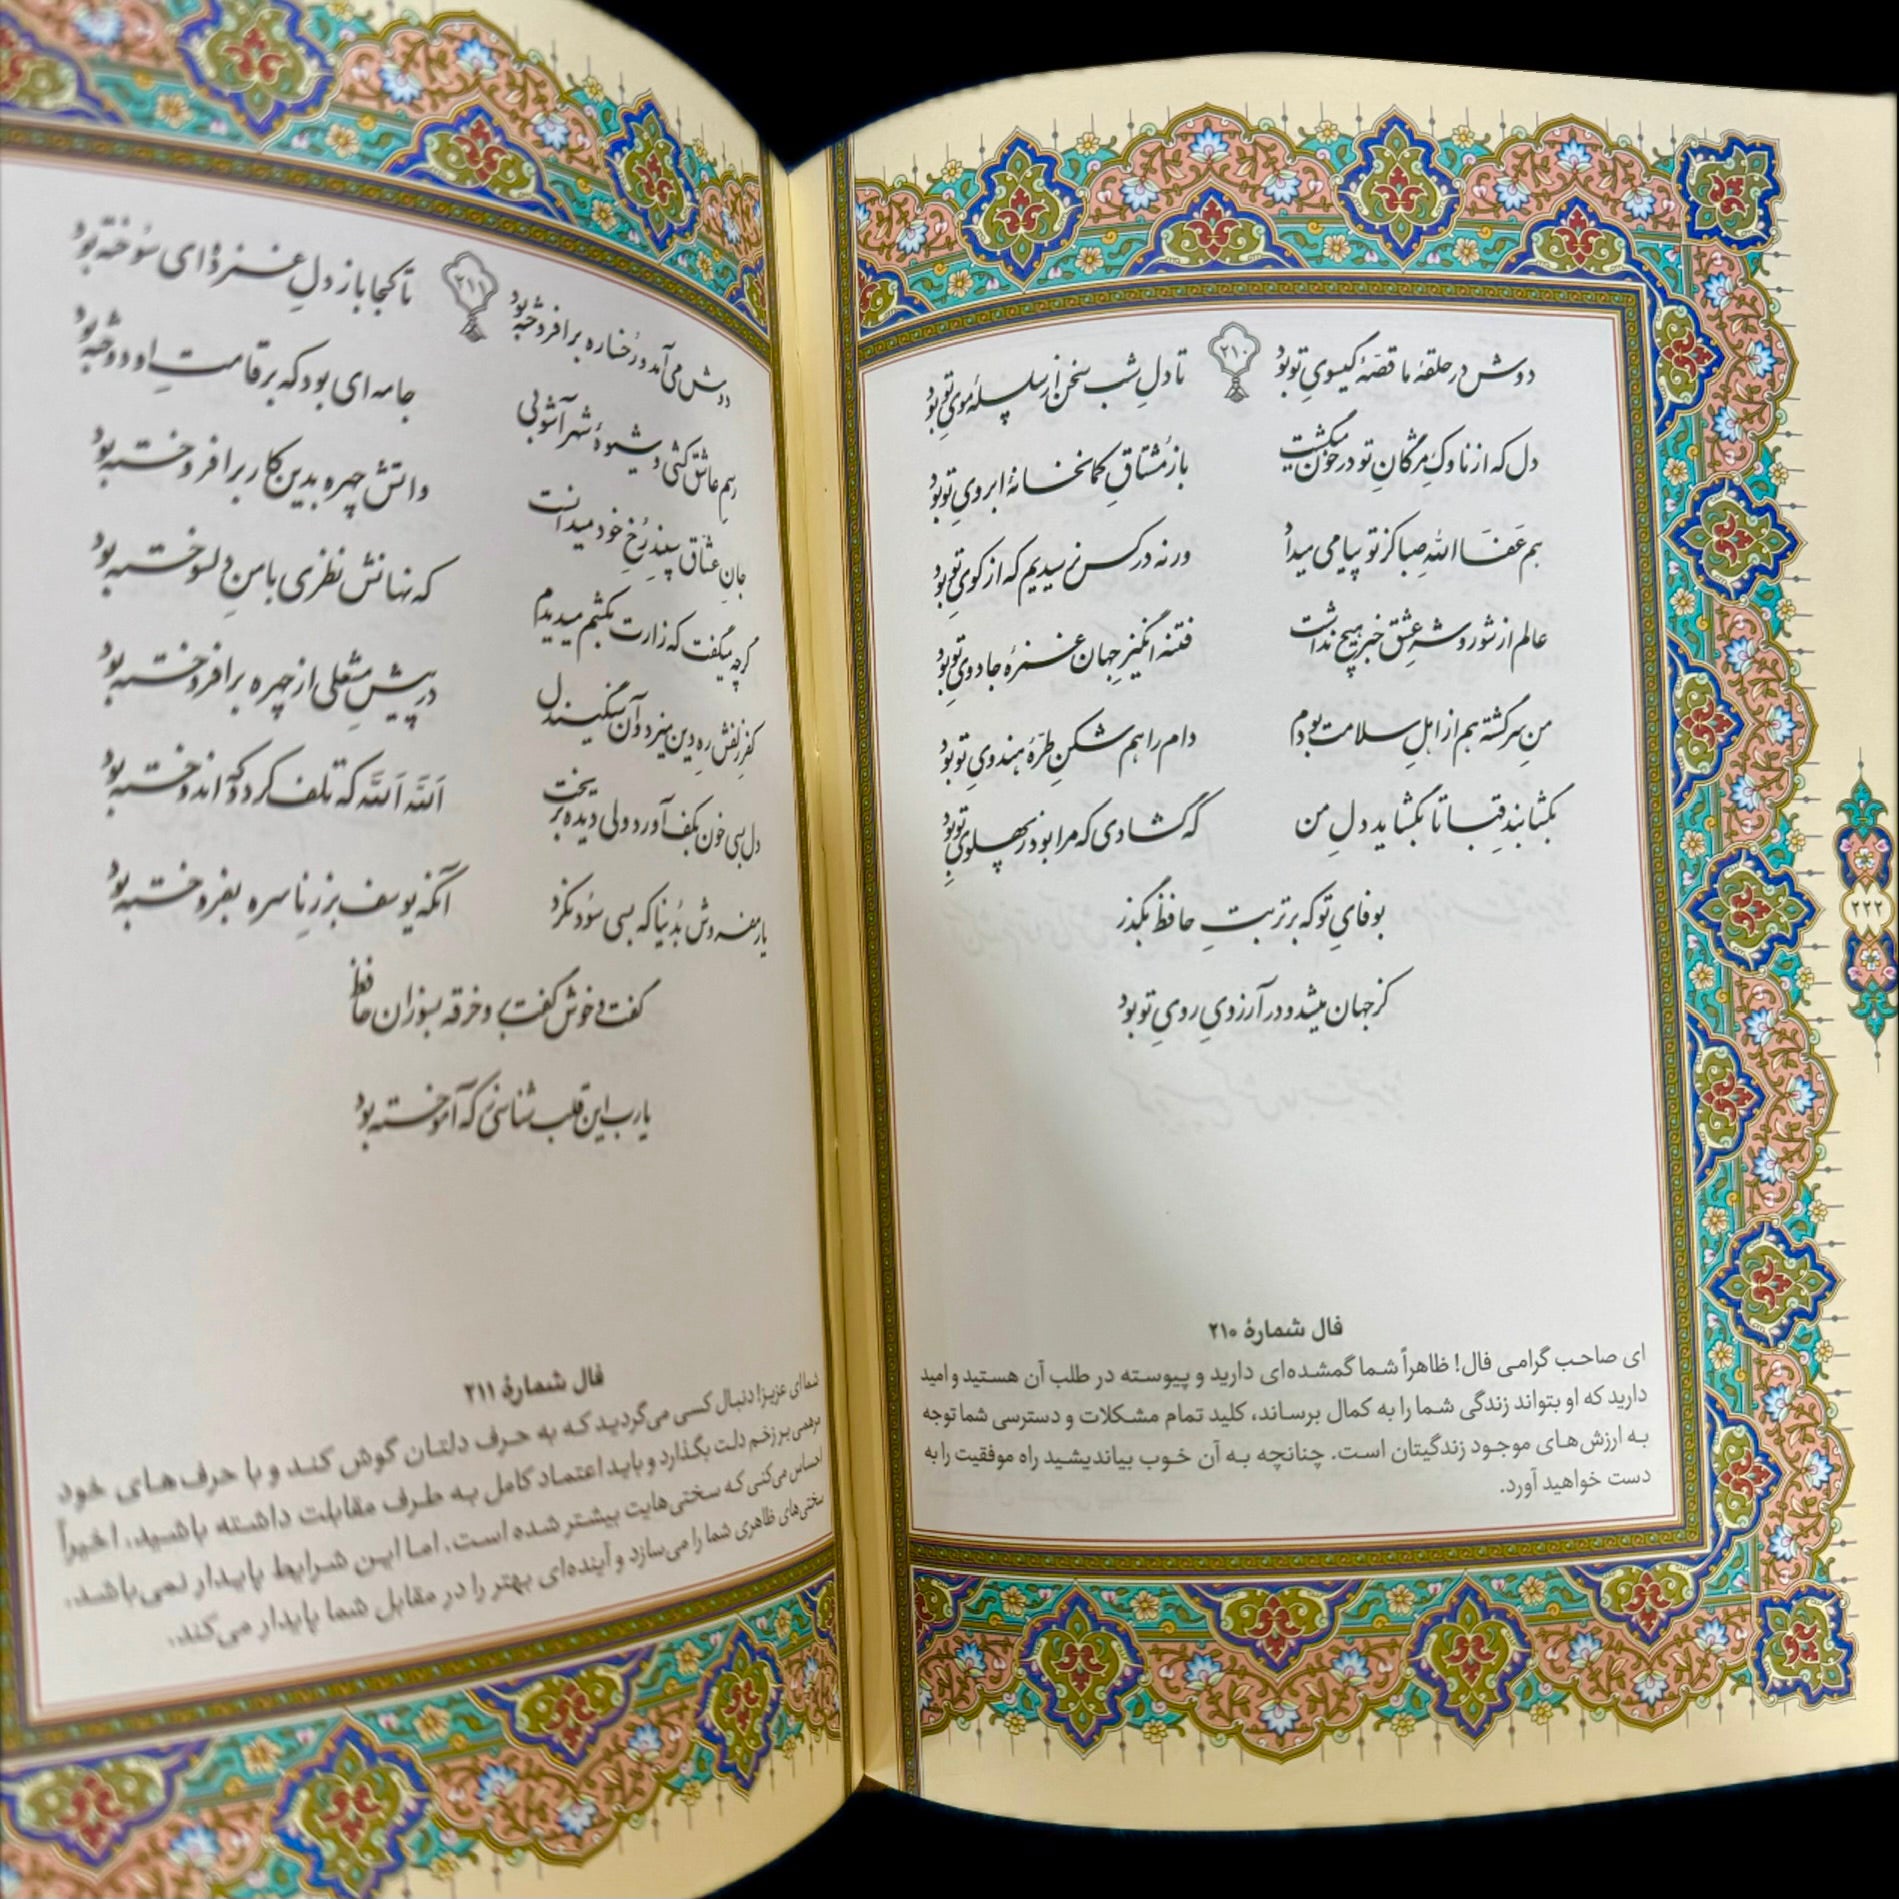 ۲۱۰
دوش در حلقهٔ ما قصّهٔ گیسویِ تو بود
تا دلِ شب سخن از سلسلهٔ مویِ تو بود
دل که از ناوکِ مژگانِ تو در خون میگشت
باز مُشتاقِ کمانخانهٔ ابرویِ تو بود
هم عَفَا الله صبا کز تو پیامی میداد
ور نه در کس نرسیدیم که از کویِ تو بود
عالم از شور و شرِ عشق خبر هیچ نداشت
فتنه انگیزِ جهان غمزهٔ جادویِ تو بود
منِ سرگشته هم از اهلِ سلامت بودم
دام راهم شکنِ طرّهٔ هندویِ تو بود
بگشا بندِ قبا تا بگشاید دلِ من
که گشادی که مرا بود ز پهلویِ تو بود
بوفایِ تو که بر تربتِ حافظ بگذر
کز جهان میشد و در آرزویِ رویِ تو بود
فال شمارهٔ ۲۱۰
ای صاحب گرامی فال! ظاهراً شما گمشده‌ای دارید و پیوسته در طلب آن هستید و امید
دارید که او بتواند زندگی شما را به کمال برساند، کلید تمام مشکلات و دسترسی شما توجه
به ارزش‌های موجود زندگیتان است. چنانچه به آن خوب بیاندیشید راه موفقیت را به
دست خواهید آورد.
۲۲۲
۲۱۱
دوش می‌آمد و رُخساره برافروخته بود
تا کجا باز دلِ غمزدهٔ‌ای سوُخته بود
رسمِ عاشق کشی و شیوهٔ شهر آشوبی
جامه‌ای بود که بر قامتِ او دوخته بود
جانِ عشّاق سپندِ رُخِ خود میدانست
واتشِ چهره بدین کار برافروخته بود
گرچه میگفت که زارت بکشم میدیدم
که نهانش نظری با منِ دلسوخته بود
کفرِ زلفش رهِ دین میزد و آن سنگیندل
در پیشِ مشعلی از چهره برافروخته بود
دل بسی خون بکف آورد ولی دیده بریخت
اَللّه اَللّه که تلف کرد و که اندوخته بود
یار مفروش بدُنیا که بسی سوُد نکرد
آنکه یوسف بزرِ ناسره بفروخته بود
گفت و خوش گفت برو خرقه بسوزان حافظ
یارب این قلب شناسی ز که آموخته بود
فال شمارهٔ ۲۱۱
شما ای عزیز! دنبال کسی می‌گردید که به حرف دلتان گوش کند و با حرف‌های خود
مرهمی بر زخم دلت بگذارد و باید اعتماد کامل به طرف مقابلت داشته باشید. اخیراً
احساس می‌کنی که سختی‌هایت بیشتر شده است، اما این شرایط پایدار نمی‌باشد.
سختی‌های ظاهری شما را می‌سازد و آینده‌ای بهتر را در مقابل شما پایدار می‌کند.